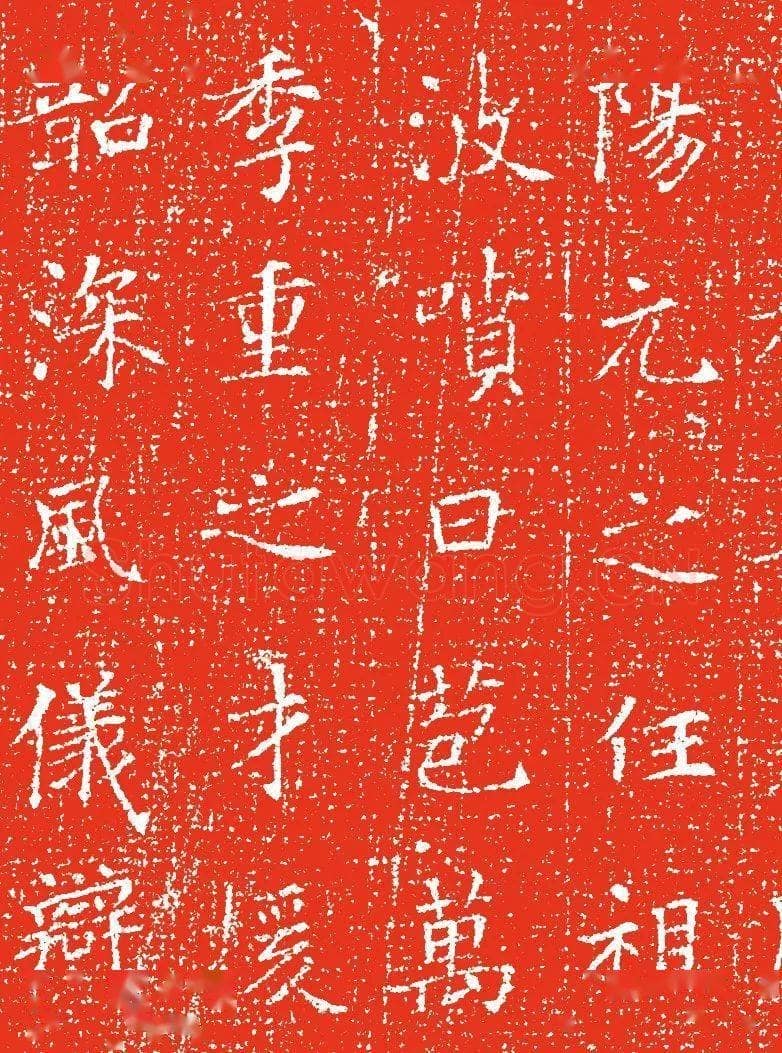 陽元之任祖
波噴日苞萬
季重之才援
韶深風儀辯
Shufawang.CN